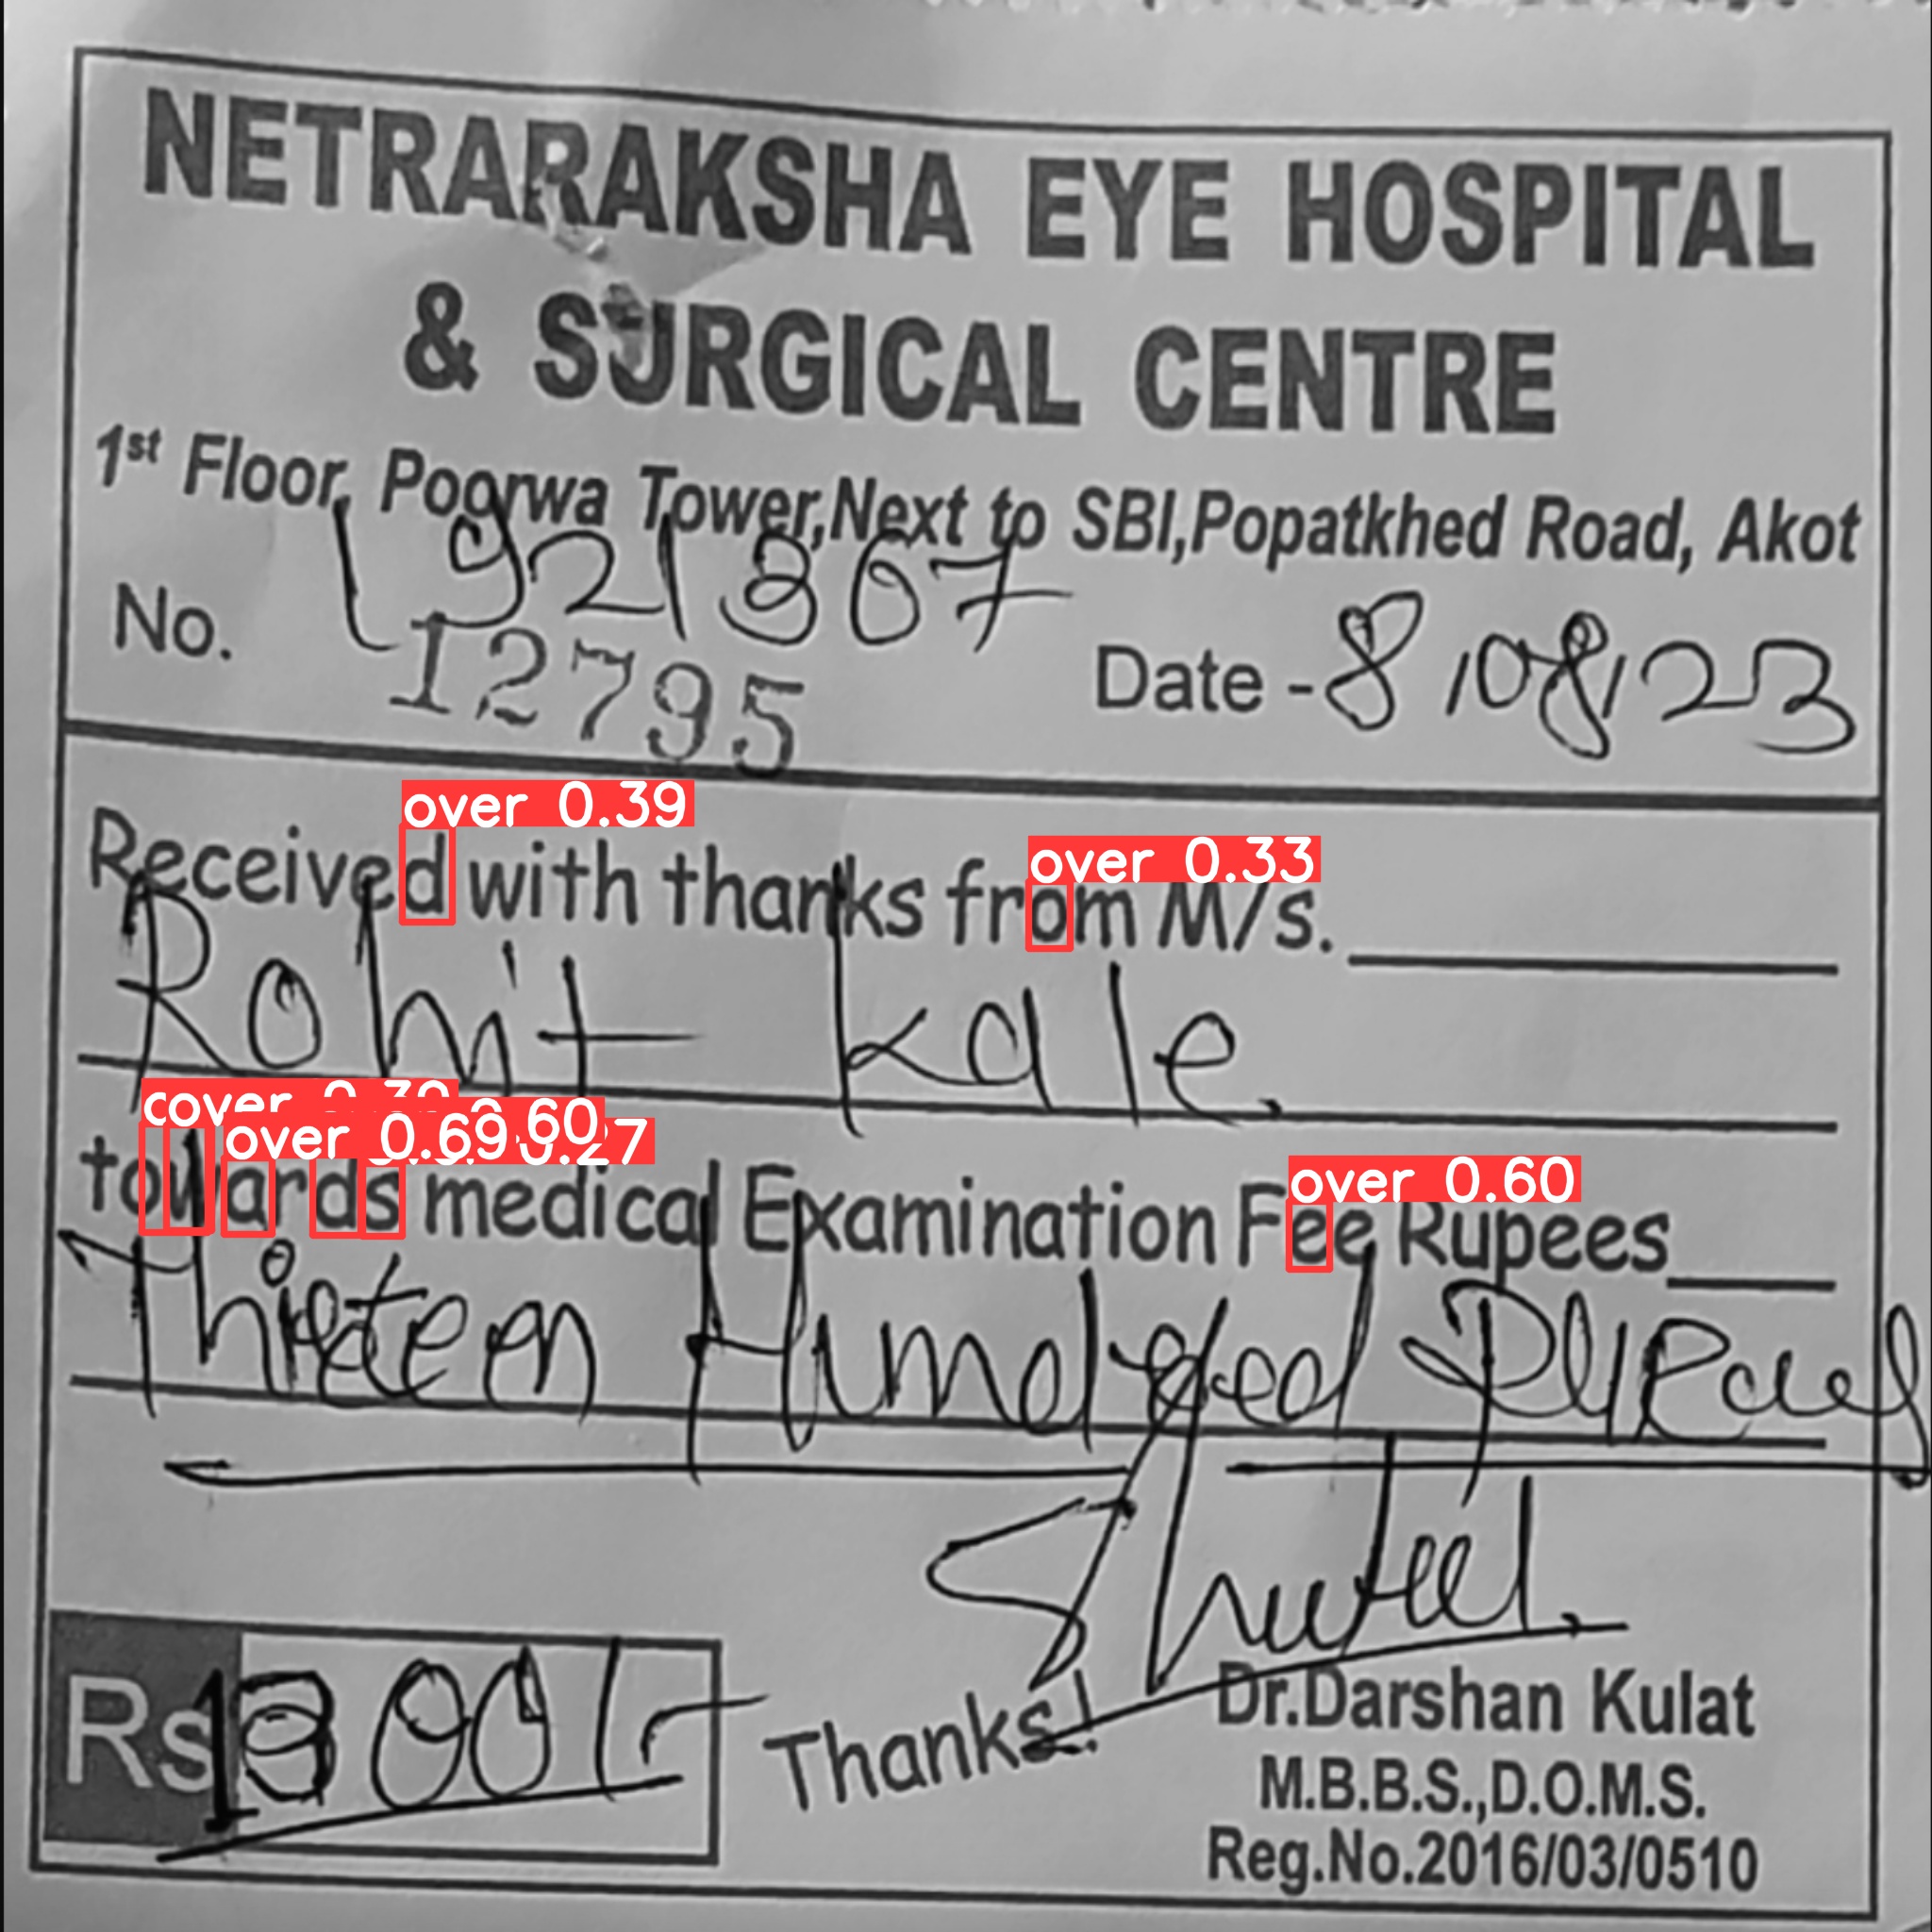 NETRARAKSHA EYE HOSPITAL
& SURGICAL CENTRE
1st Floor, Poorwa Tower,Next to SBI,Popatkhed Road, Akot
1921367
No. 12795 Date - 8/08/23
over 0.39
over 0.33
Received with thanks from M/s.
Rohit Kale
over 0.69 0.60
over 0.60
towards medical Examination Fee Rupees
Hundred
Rs 1300/-
Thanks!
Dr.Darshan Kulat
M.B.B.S.,D.O.M.S.
Reg.No.2016/03/0510